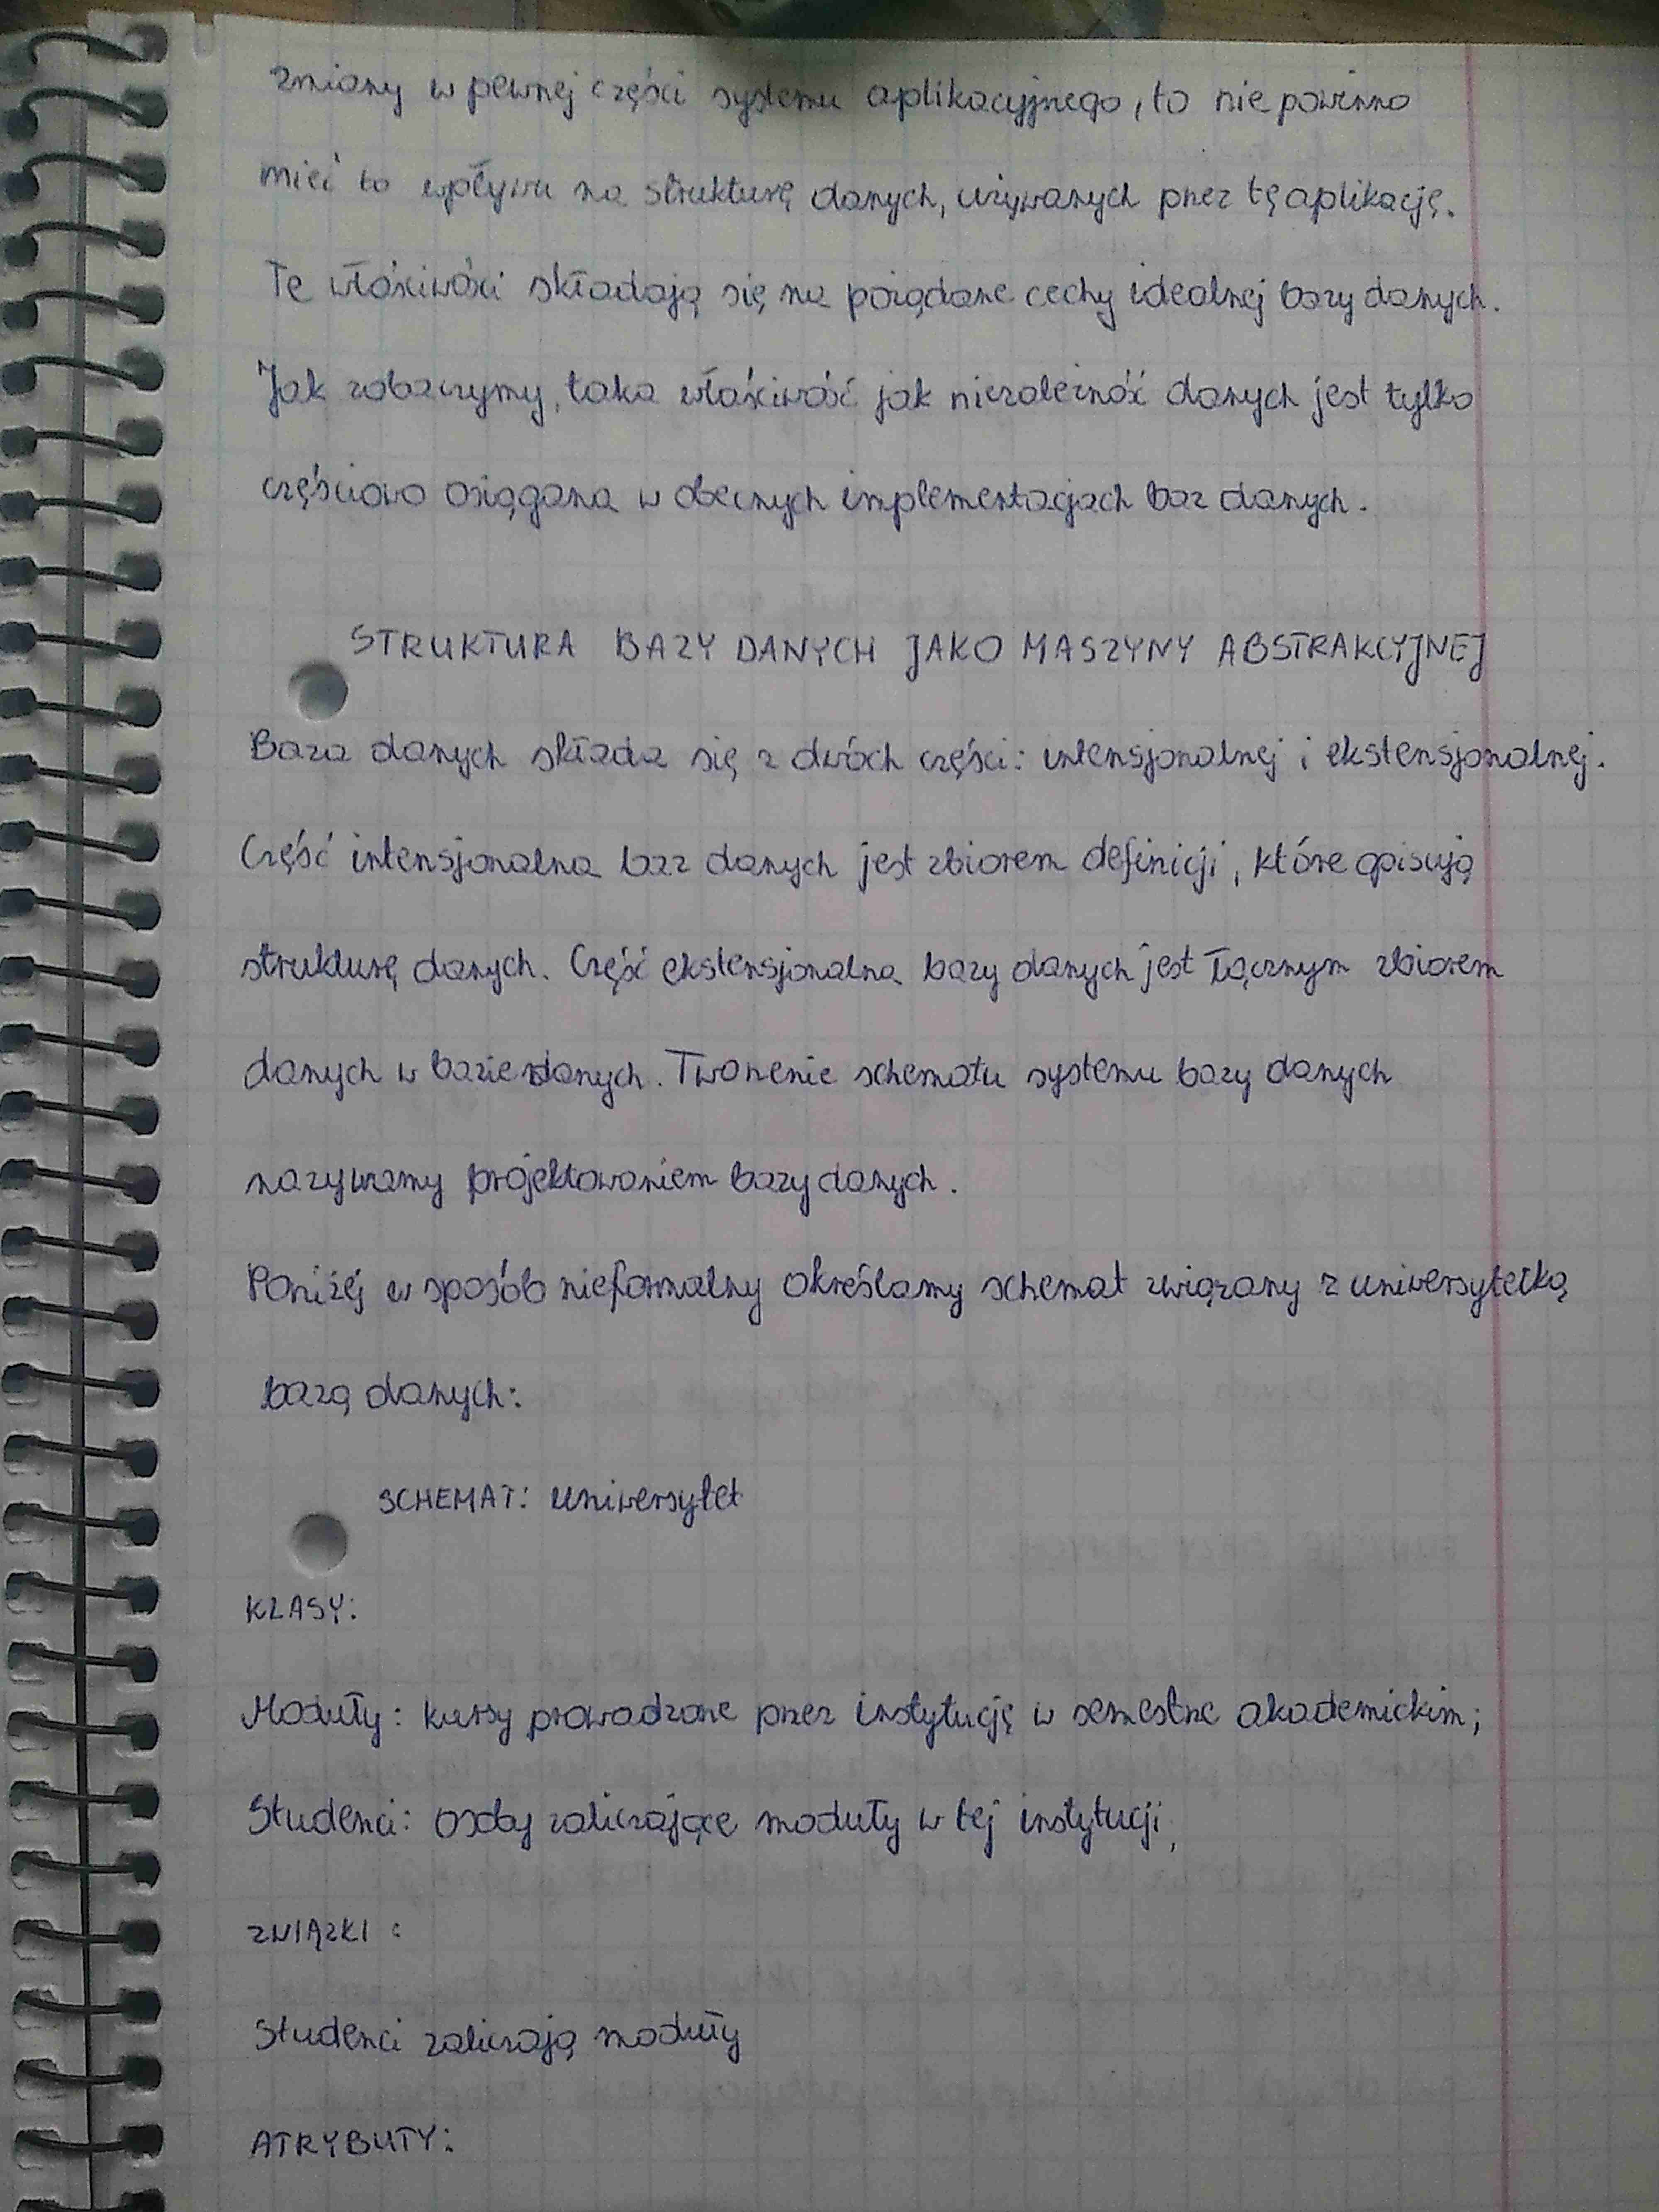 zmiany w pewnej części systemu aplikacyjnego, to nie powinno
mieć to wpływu na strukturę danych, używanych przez tę aplikację.
Te właściwości składają się na pożądane cechy idealnej bazy danych.
Jak zobaczymy, taka właściwość jak niezależność danych jest tylko
częściowo osiągana w obecnych implementacjach baz danych.
STRUKTURA BAZY DANYCH JAKO MASZYNY ABSTRAKCYJNEJ
Baza danych składa się z dwóch części: intensjonalnej i ekstensjonalnej.
Część intensjonalna baz danych jest zbiorem definicji, które opisują
strukturę danych. Część ekstensjonalna bazy danych jest łącznym zbiorem
danych w bazie danych. Tworzenie schematu systemu bazy danych
nazywamy projektowaniem bazy danych.
Poniżej w sposób nieformalny określamy schemat związany z uniwersytecką
bazą danych:
SCHEMAT: Uniwersytet
KLASY:
Moduły: kursy prowadzone przez instytucję w semestrze akademickim;
Studenci: osoby zaliczające moduły w tej instytucji,
ZWIĄZKI:
Studenci zaliczają moduły
ATRYBUTY: